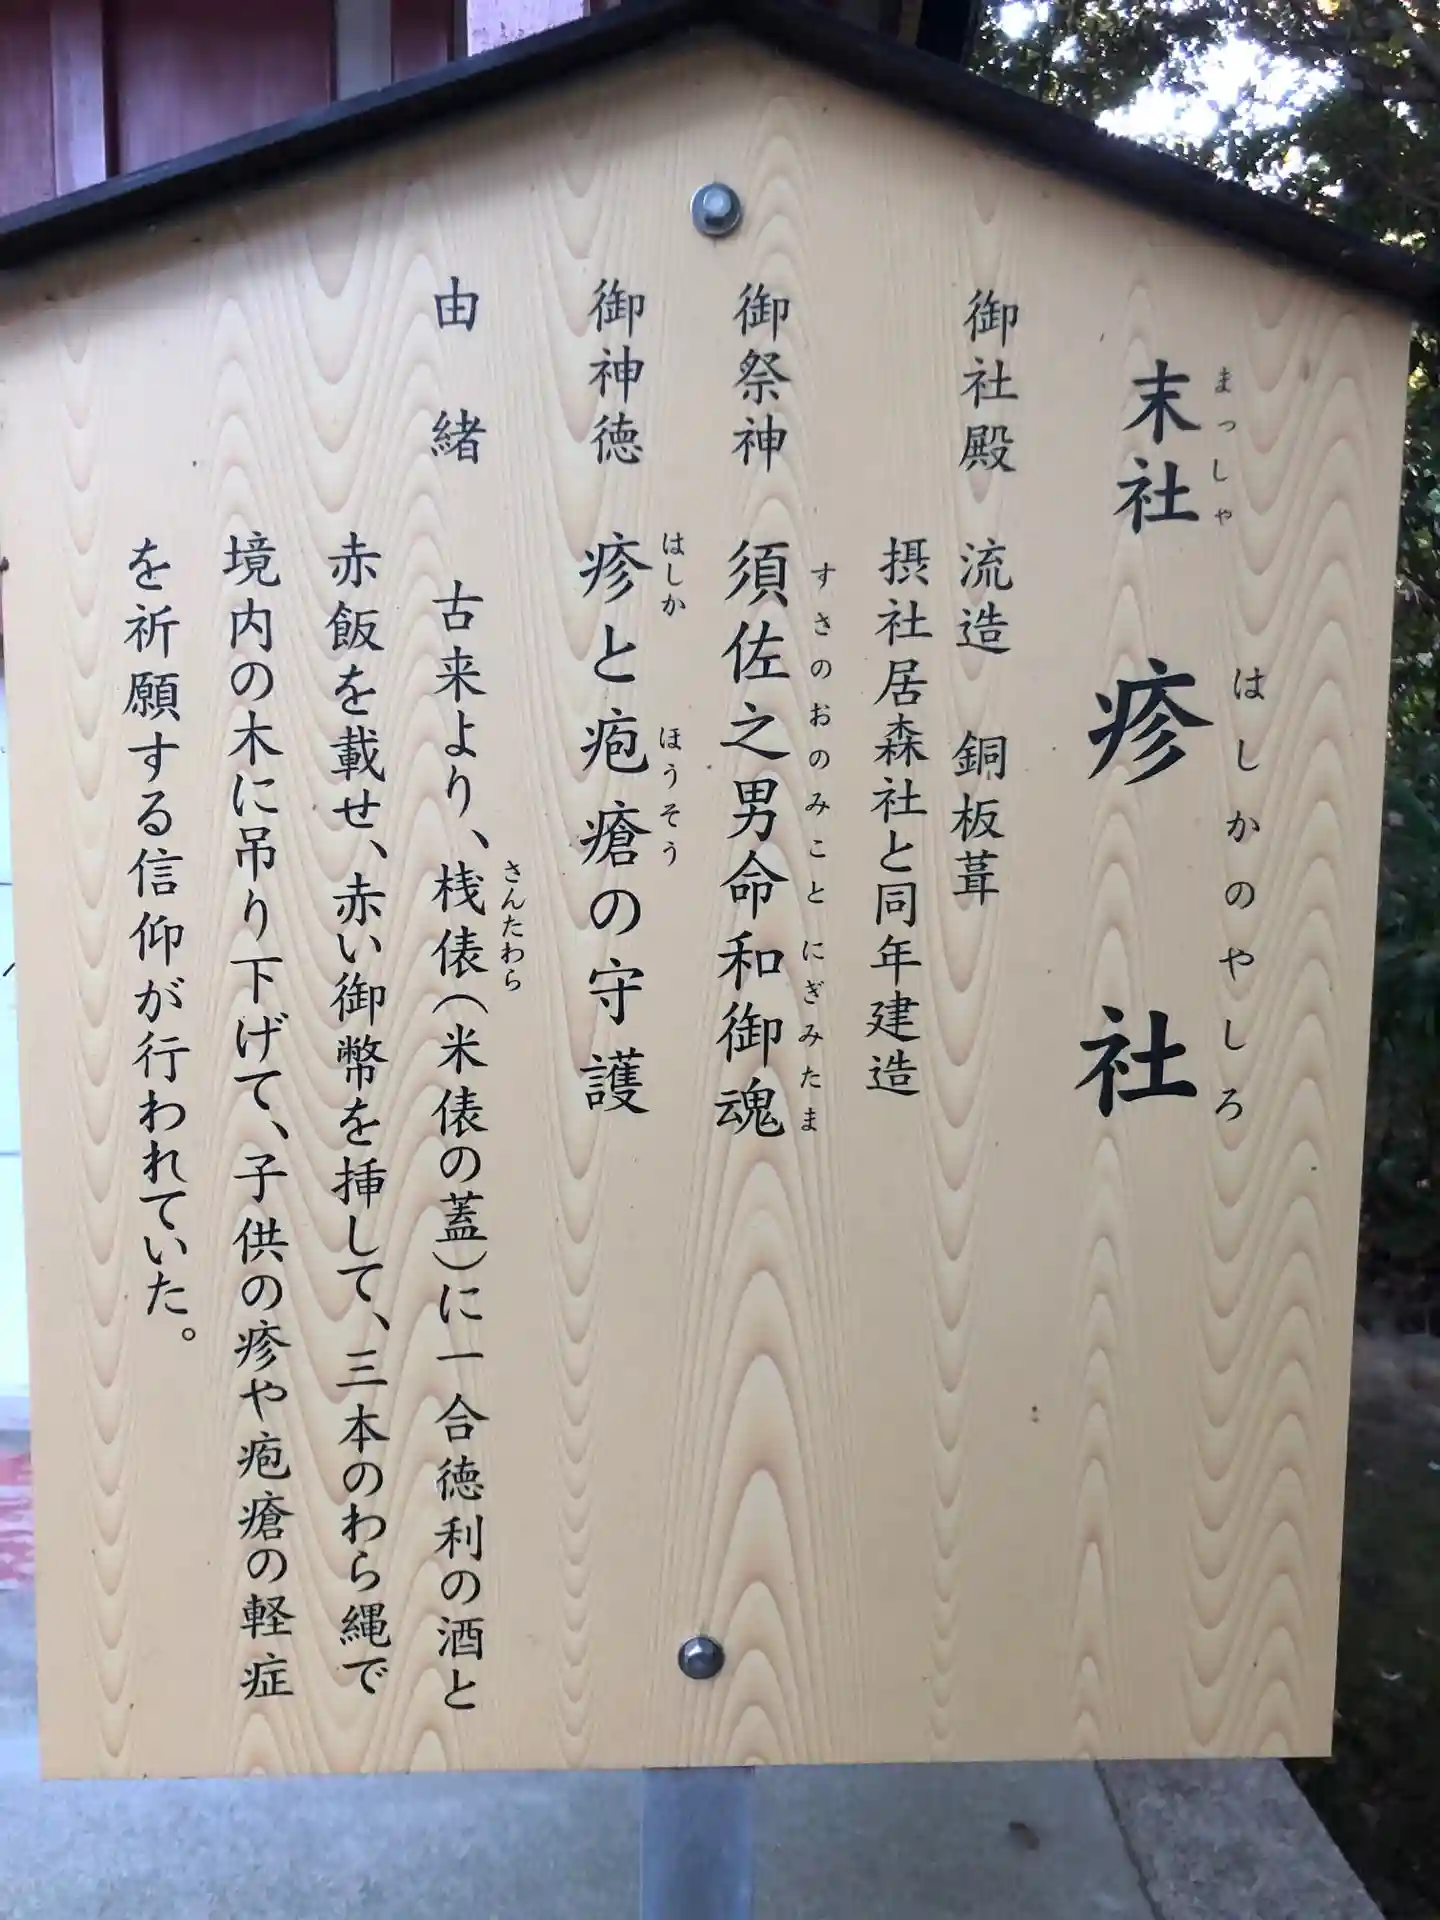 末社 疹社
まっしゃ はしかのやしろ
御社殿 流造 銅板葺
摂社居森社と同年建造
御祭神 須佐之男命和御魂
すさのおのみこと にぎみたま
御神徳 疹と疱瘡の守護
はしか ほうそう
由緒 古来より、桟俵(米俵の蓋)に一合徳利の酒と
さんたわら
赤飯を載せ、赤い御幣を挿して、三本のわら縄で
境内の木に吊り下げて、子供の疹や疱瘡の軽症
を祈願する信仰が行われていた。